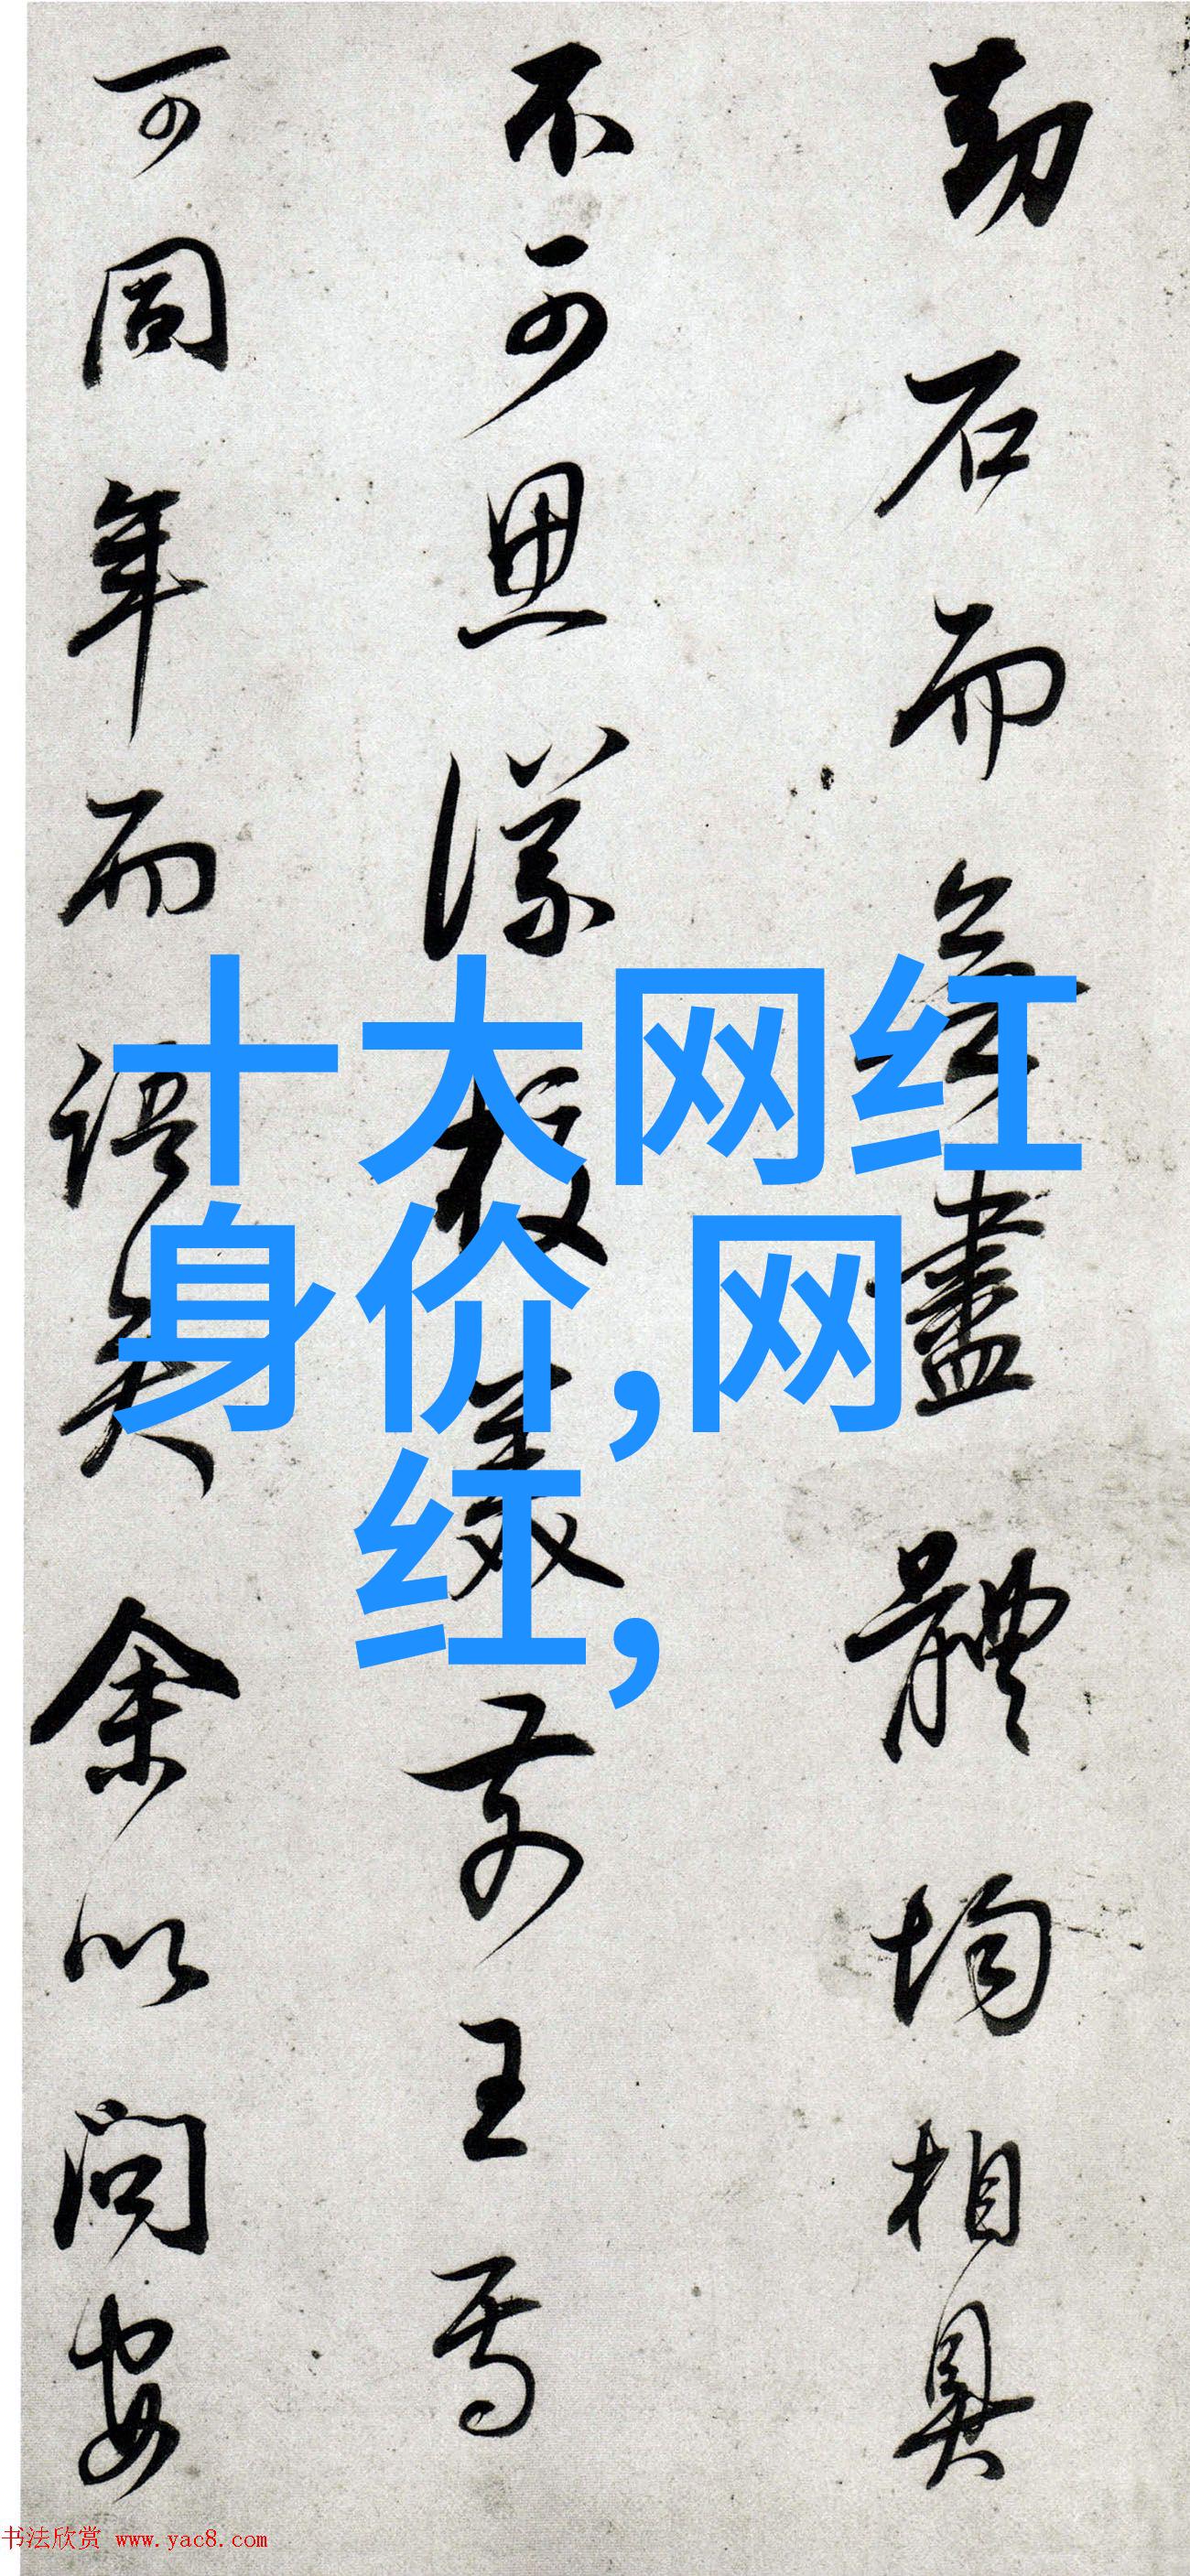 劫石而無盡體均相具
不可思議校美前王焉
可同年而語矣余以問安
十大网红
身价,网
红,
书法欣赏 www.yac8.com